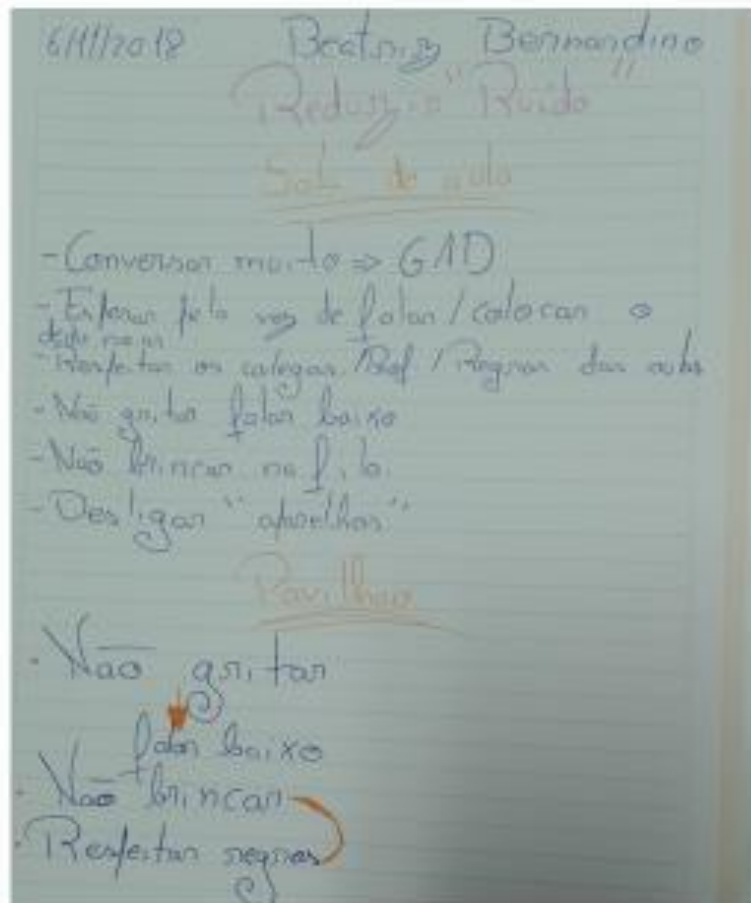 6/11/2018 Beatriz Bernardino
Reduzir o "Ruído"
Sala de aula
- Conversar muito => GAD
- Esperar pela vez de falar / colocar o
dedo no ar
- Respeitar os colegas / Prof / Regras das aulas
- Não gritar falar baixo
- Não brincar na fila.
- Desligar "aparelhos"
Pavilhão
. Não gritar
falar baixo
. Não brincar
. Respeitar regras